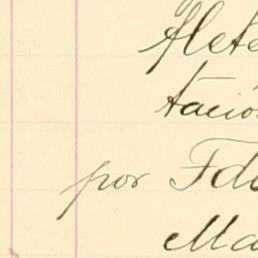 Flete
tación
por Fdo
Ma